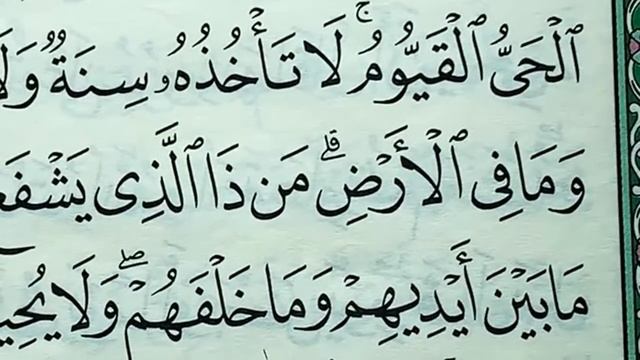 ٱلْحَىُّ ٱلْقَيُّومُ ۚ لَا تَأْخُذُهُۥ سِنَةٌ وَلَا
وَمَا فِى ٱلْأَرْضِ ۗ مَن ذَا ٱلَّذِى يَشْفَع
مَا بَيْنَ أَيْدِيهِمْ وَمَا خَلْفَهُمْ ۖ وَلَا يُحِي